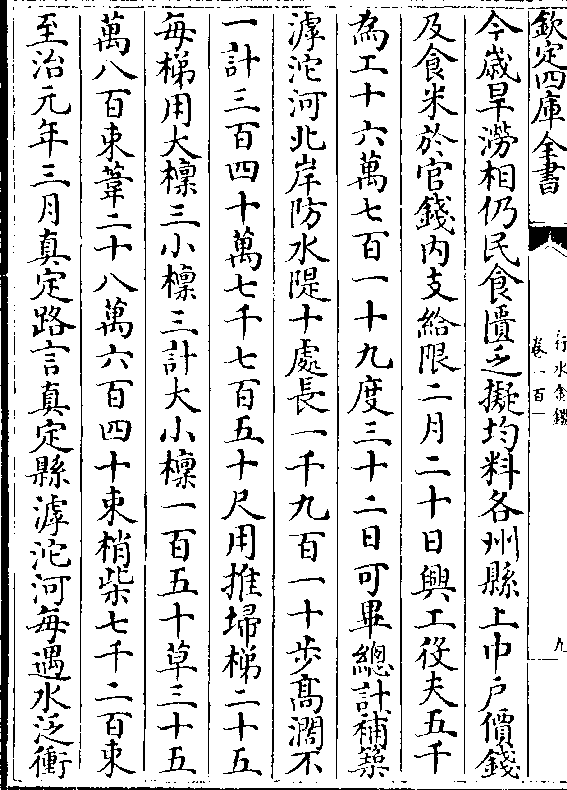 欽定四庫全書
行水金鑑
卷一百一
九
今歲旱澇相仍民食匱乏擬均料各州縣上中戶價錢
及食米於官錢內支給限二月二十日興工役夫五千
為工十六萬七百一十九度三十二日可畢總計補築
滹沱河北岸防水隄十處長一千九百一十步高濶不
一計三百四十萬七千七百五十尺用推埽梯二十五
每梯用大檁三小檁三計大小檁一百五十草三十五
萬八百束葦二十八萬六百四十束梢柴七千二百束
至治元年三月真定路言真定縣滹沱河每遇水泛衝